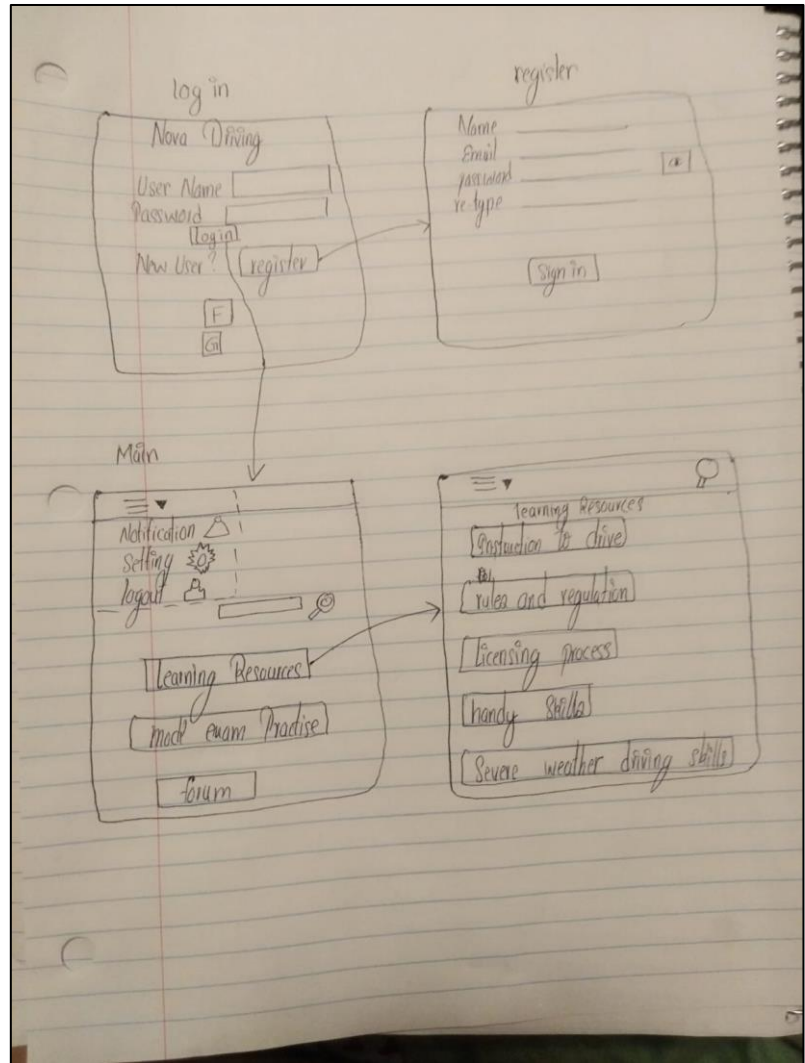 log in
Nova Driving
User Name
Password
login
New User? register
F
G
register
Name
Email
password
re-type
OR
Sign in
Main
Notification
Setting
logout
learning Resources
mock exam Practise
forum
learning Resources
Instruction to drive
rules and regulation
Licensing process
handy Skills
Severe weather driving skills